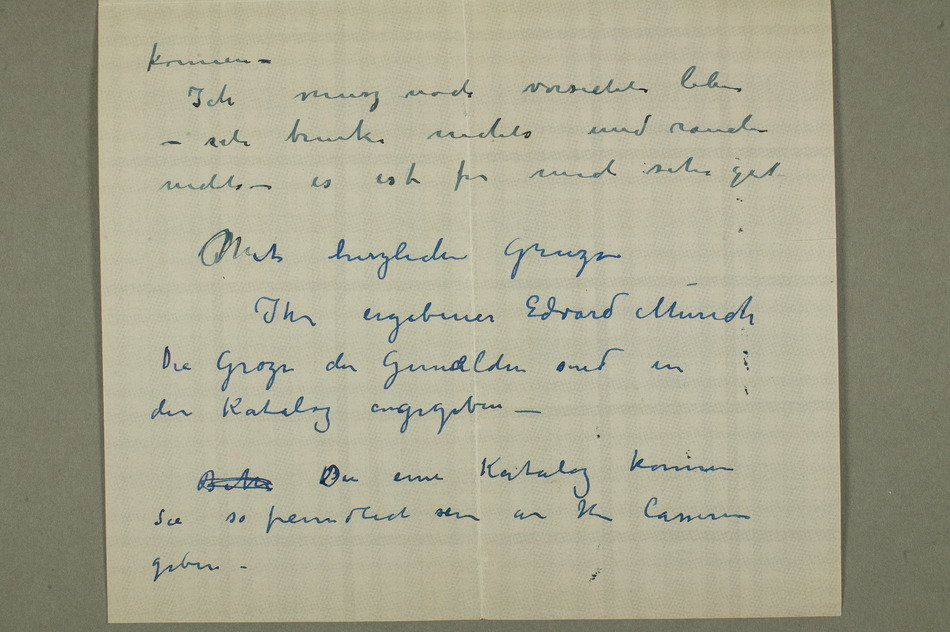 kommen –
Ich musz noch vorsichtig leben
– ich trinke nichts und rauche
nichts – es ist für mich sehr gut
Mit herzlichen Gruzse
Ihr ergebener Edvard Munch
Die Grözse der Gemälden sind in
der Katalog angegeben –
Die eine Katalog können
Sie so freundlich sein an H Cassirer
geben –